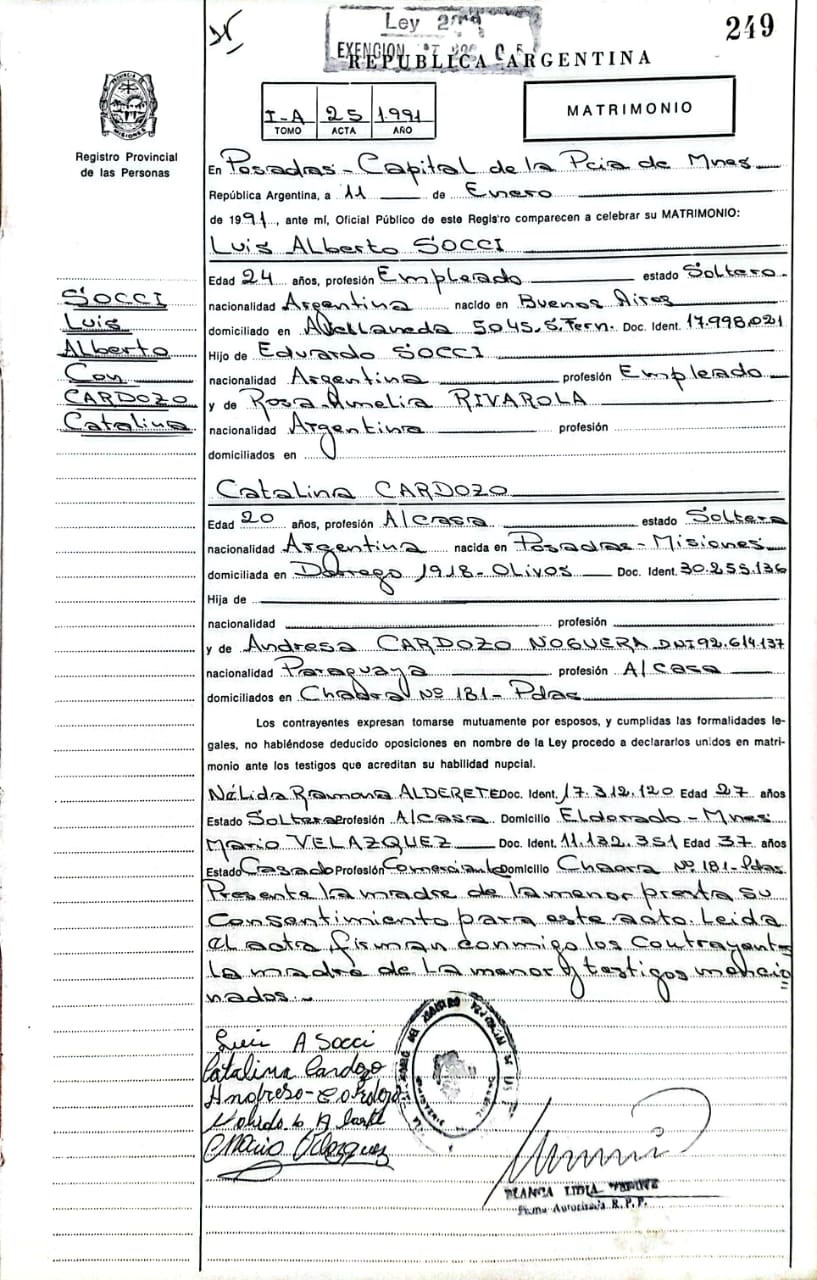 Ley
249
EXENCION
REPUBLICA ARGENTINA
I-A 25 1.991
TOMO ACTA AÑO
MATRIMONIO
Registro Provincial
de las Personas
En Posadas - Capital de la Pcia de Mnes
República Argentina, a 11 de Enero
de 1991, ante mí, Oficial Público de este Registro comparecen a celebrar su MATRIMONIO:
Luis Alberto SOCCI
SOCCI
Luis
Alberto
Con
CARDOZO
Catalina
Edad 24 años, profesión Empleado estado Soltero
nacionalidad Argentina nacido en Buenos Aires
domiciliado en Avellaneda 5045. S. Fern. Doc. Ident. 17.998.021
Hijo de Eduardo SOCCI
nacionalidad Argentina profesión Empleado
y de Rosa Amelia RIVAROLA
nacionalidad Argentina profesión
domiciliados en
Catalina CARDOZO
Edad 20 años, profesión A/casa estado Soltera
nacionalidad Argentina nacida en Posadas - Misiones
domiciliada en Dorrego 1918 - Olivos Doc. Ident. 30.255.136
Hija de
nacionalidad profesión
y de Andresa CARDOZO NOGUERA DNI 92.614.137
nacionalidad Paraguaya profesión A/casa
domiciliados en Chacra Nº 181 - Pdas
Los contrayentes expresan tomarse mutuamente por esposos, y cumplidas las formalidades le-
gales, no habiéndose deducido oposiciones en nombre de la Ley procedo a declararlos unidos en matri-
monio ante los testigos que acreditan su habilidad nupcial.
Nélida Ramona ALDERETE Doc. Ident. 17.312.120 Edad 27 años
Estado Soltera Profesión A/casa Domicilio Eldorado - Mnes
Mario VELAZQUEZ Doc. Ident. 11.132.351 Edad 37 años
Estado Casado Profesión Comerciante Domicilio Chacra Nº 181 - Pdas
Presente la madre de la menor presta su
consentimiento para este acto. Leida
el acta firman conmigo los contrayentes
la madre de la menor y testigos mencio
nados. -
Luis A Socci
Catalina Cardozo
Mario Velazquez
BLANCA LIDIA
Firma Autorizada R. P. P.